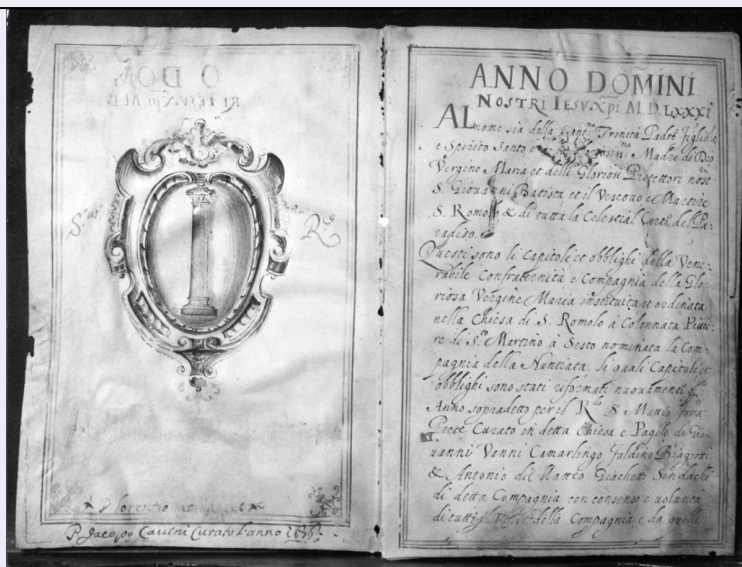 P. Lorenzo
P. Jacopo Cavini Curato l'anno
ANNO DOM̃INI
NOSTRI IESV Xp̃i M.D.LXXXI
AL nome sia della Trenità Padre figliolo
e Spirito Santo e Madre di Dio
Vergine Maria et delli Gloriosi Protettori nost
S. Giovanni Batista et il Vescovo e Martire
S. Romolo & di tutta la Celestial Corte del Pa-
radiso.
Questi sono li Capitoli et obblighi della Vene-
rabile Confraternita e Compagnia della Glo-
riosa Vergine Maria instituita et ordinata
nella Chiesa di S. Romolo à Colonnata Pivie-
re di S.to Martino à Sesto nominata la Com-
pagnia della Nuntiata. li quali Capitoli et
obblighi sono stati riformati nuovamente
Anno sopradetto per il R.do S. Mattio
Prete Curato in detta Chiesa e Pagolo di Gio-
vanni Vanni Camarlingo Biagiotti
& Antonio di Matteo Giachetti Sindachi
di detta Compagnia con consenso e volontà
di tutti gl' della Compagnia e da quelli